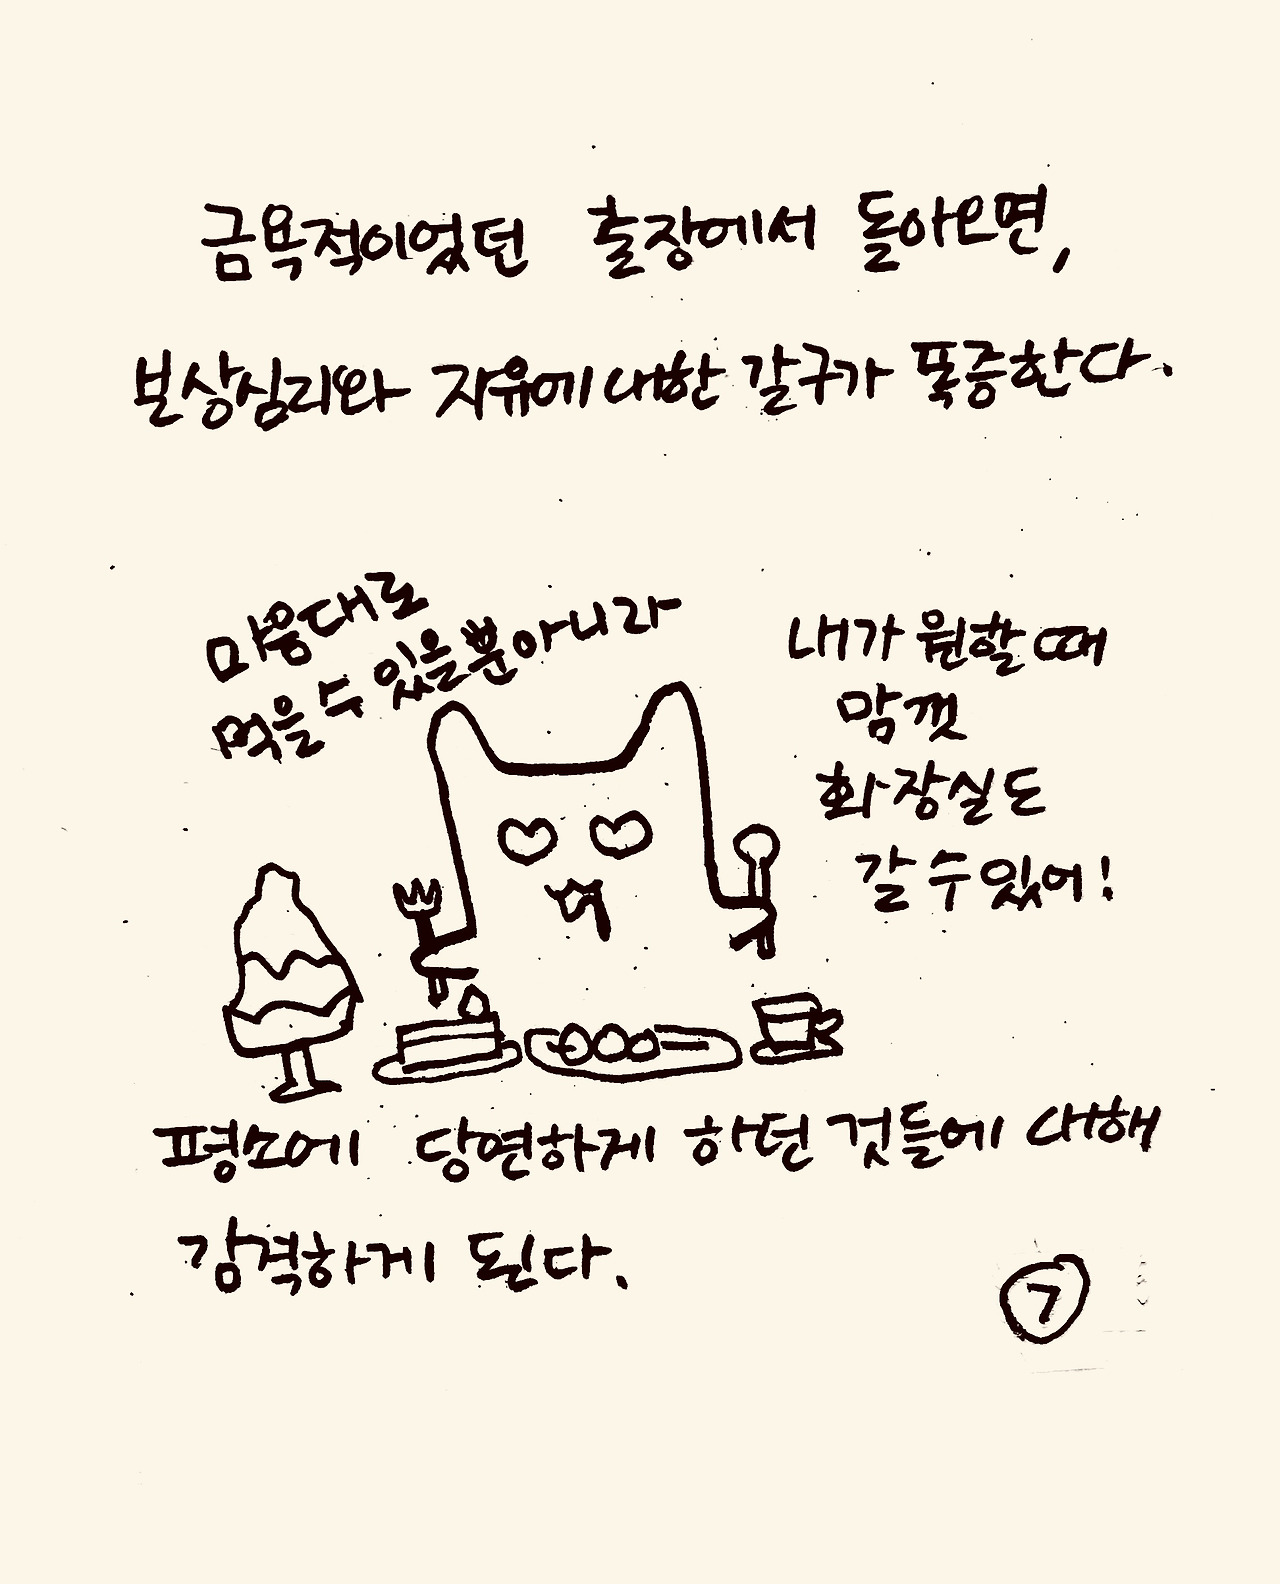 금욕적이었던 출장에서 돌아오면,
보상심리와 자유에 대한 갈구가 폭증한다.
마음대로
먹을 수 있을 뿐 아니라
내가 원할 때
맘껏
화장실도
갈 수 있어!
평소에 당연하게 하던 것들에 대해
감격하게 된다.
7